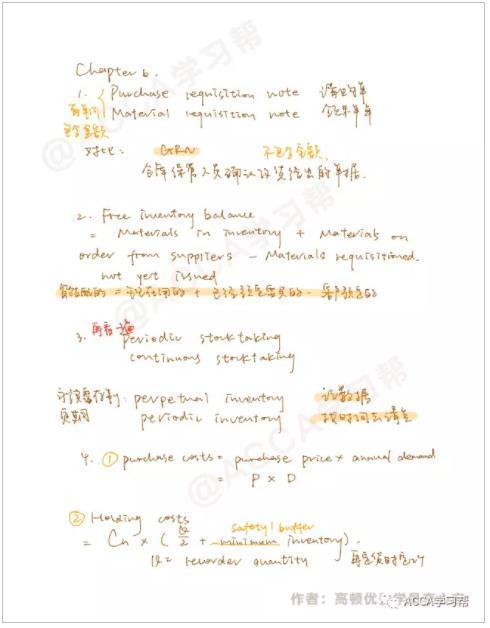 Chapter 6.
1. Purchase requisition note 请购单
Material requisition note 领料单
有单价
包含金额
对比: GRN 不包含金额
仓库保管人员确认收货给出的单据.
2. Free inventory balance
= Materials in inventory + Materials on
order from suppliers - Materials requisitioned
not yet issued
3. 再看一遍
periodic stocktaking
continuous stocktaking
perpetual inventory 记数据
periodic inventory 按时间去清点
4. ① purchase costs = purchase price × annual demand
= P × D
② Holding costs
safety/buffer
= Ch × (Q/2 + minimum inventory).
Q = reorder quantity
@ACCA学习帮
@ACCA学习帮
作者:高顿优
ACCA学习帮